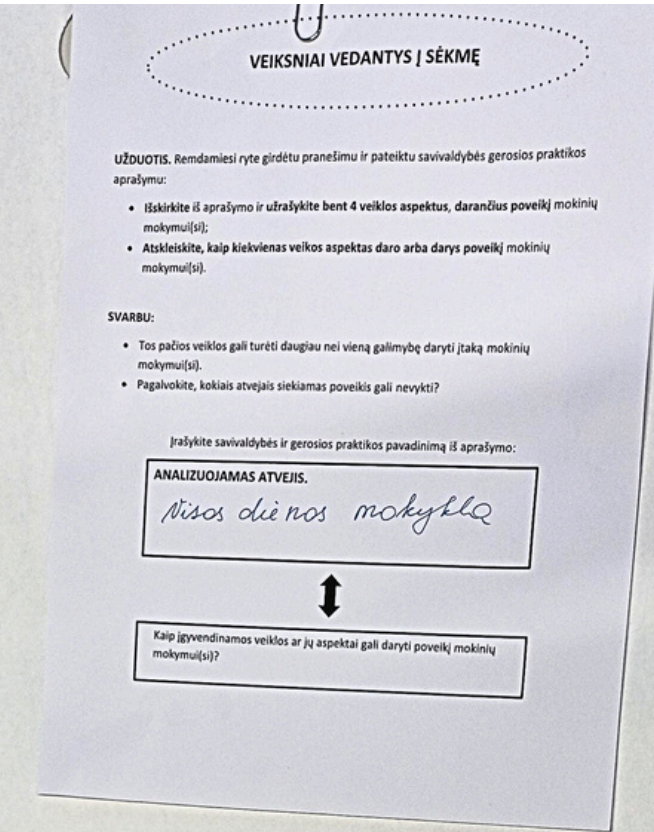 VEIKSNIAI VEDANTYS Į SĖKMĘ
UŽDUOTIS. Remdamiesi ryte girdėtu pranešimu ir pateiktu savivaldybės gerosios praktikos
aprašymu:
• Išskirkite iš aprašymo ir užrašykite bent 4 veiklos aspektus, darančius poveikį mokinių
mokymui(si);
• Atskleiskite, kaip kiekvienas veikos aspektas daro arba darys poveikį mokinių
mokymui(si).
SVARBU:
• Tos pačios veiklos gali turėti daugiau nei vieną galimybę daryti įtaką mokinių
mokymui(si).
• Pagalvokite, kokiais atvejais siekiamas poveikis gali nevykti?
Įrašykite savivaldybės ir gerosios praktikos pavadinimą iš aprašymo:
ANALIZUOJAMAS ATVEJIS.
Visos dienos mokykla
Kaip įgyvendinamos veiklos ar jų aspektai gali daryti poveikį mokinių
mokymui(si)?